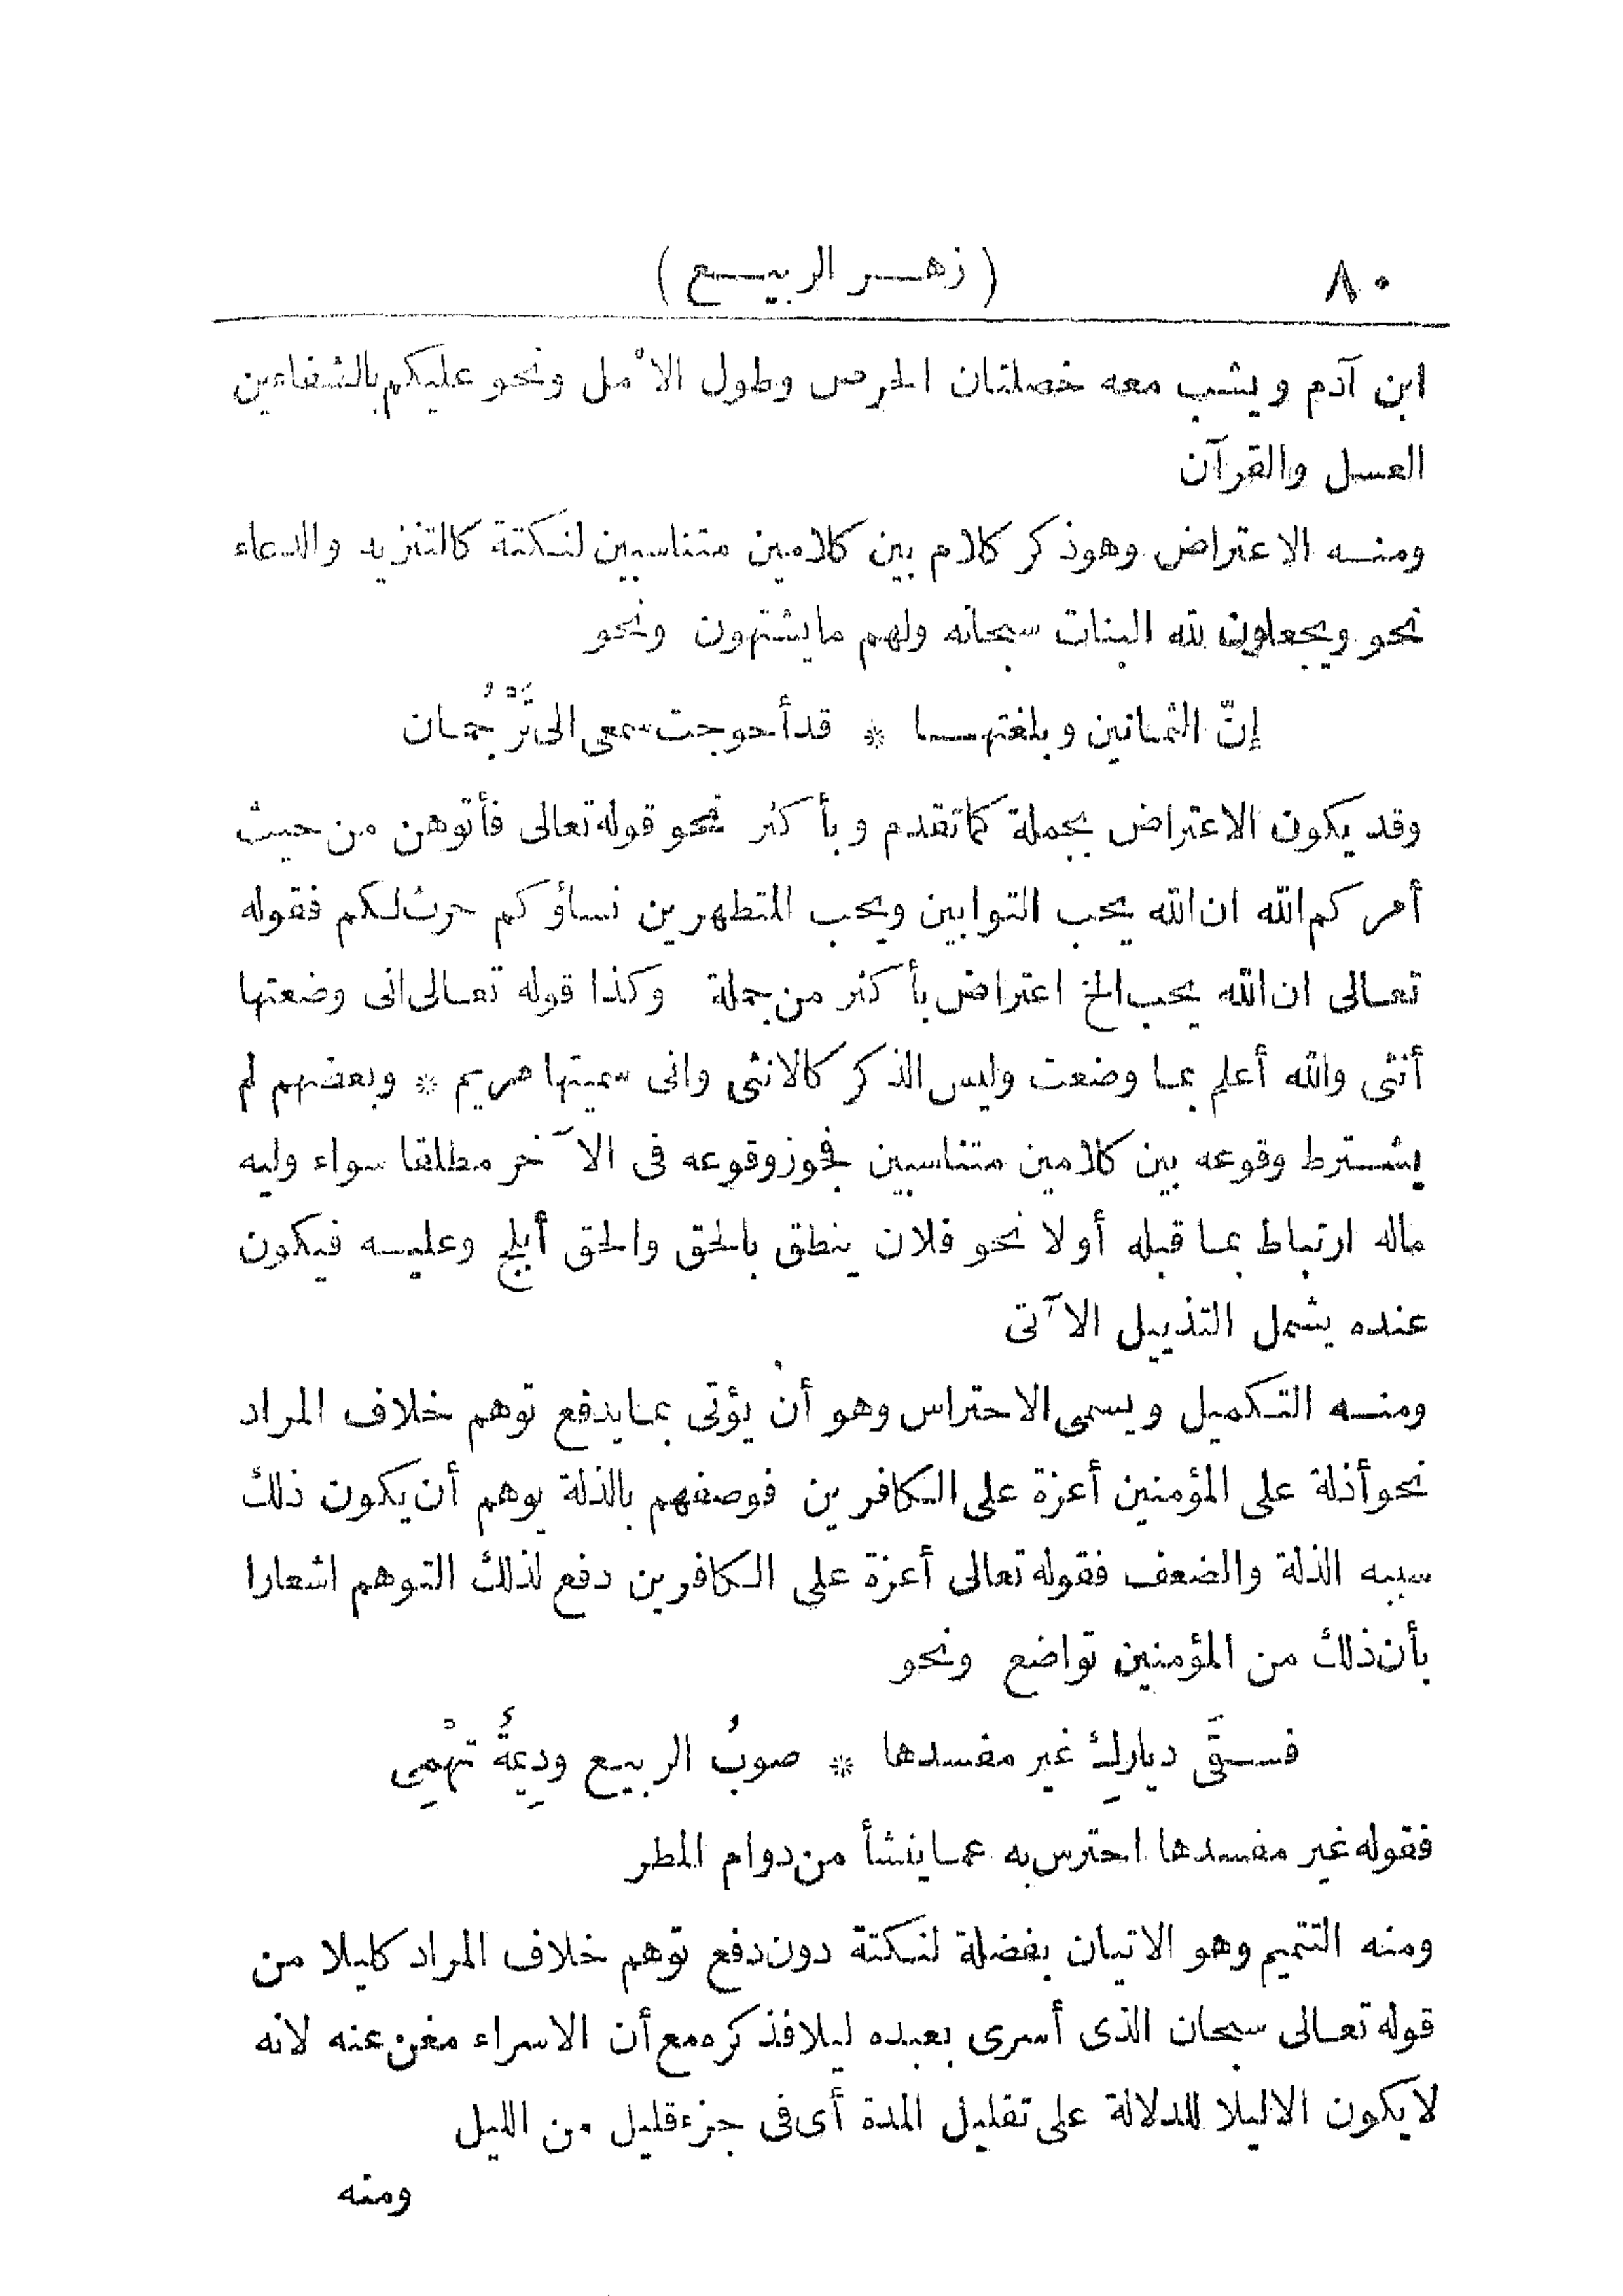 ٨٠ (زهر الربيع)
ابن آدم ويشب معه خصلتان الحرص وطول الأمل ونحو عليكم بالشفاءين
العسل والقرآن
ومنه الاعتراض وهو ذكر كلام بين كلامين متناسبين لنكتة كالتنزيه والدعاء
نحو ويجعلون لله البنات سبحانه ولهم ما يشتهون ونحو
إنّ الثمانين وبلغتها * قد أحوجت سمعى الى تَرْجُمان
وقد يكون الاعتراض بجملة كما تقدم وبأكثر نحو قوله تعالى فأتوهن من حيث
أمركم الله ان الله يحب التوابين ويحب المتطهرين نساؤكم حرث لكم فقوله
تعالى ان الله يحب الخ اعتراض بأكثر من جملة وكذا قوله تعالى انى وضعتها
أنثى والله أعلم بما وضعت وليس الذكر كالانثى وانى سميتها مريم * وبعضهم لم
يشترط وقوعه بين كلامين متناسبين فجوز وقوعه فى الآخر مطلقا سواء وليه
ماله ارتباط بما قبله أولا نحو فلان ينطق بالحق والحق أبلج وعليه فيكون
عنده يشمل التذييل الآتى
ومنه التكميل ويسمى الاحتراس وهو أنْ يؤتى بما يدفع توهم خلاف المراد
نحو أذلة على المؤمنين أعزة على الكافرين فوصفهم بالذلة يوهم أن يكون ذلك
سببه الذلة والضعف فقوله تعالى أعزة على الكافرين دفع لذلك التوهم اشعارا
بأن ذلك من المؤمنين تواضع ونحو
فسقَى دياركِ غير مفسدها * صوبُ الربيع ودِيمةٌ تهْمِى
فقوله غير مفسدها احترس به عما ينشأ من دوام المطر
ومنه التتميم وهو الاتيان بفضلة لنكتة دون دفع توهم خلاف المراد كليلا من
قوله تعالى سبحان الذى أسرى بعبده ليلا فذكره مع أن الاسراء مغن عنه لانه
لا يكون الا ليلا للدلالة على تقليل المدة أى فى جزء قليل من الليل
ومنه